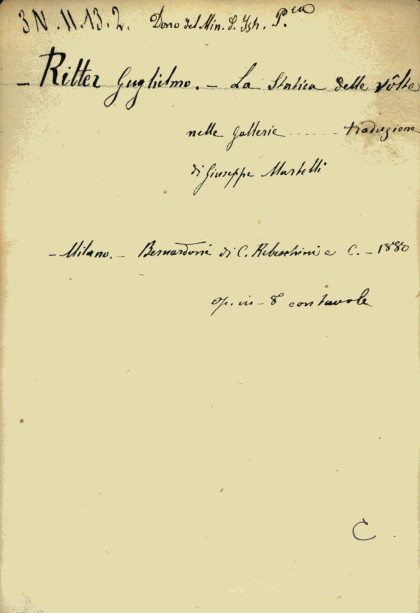 3 N. 11. 13. 2. Dono del Min. d. Istr. P.ca
- Ritter Guglielmo. - La Statica delle vôlte
nelle gallerie ...... traduzione
di Giuseppe Martelli
- Milano. - Bernardoni di C. Rebeschini e C. - 1880
op. in - 8° con tavole
C